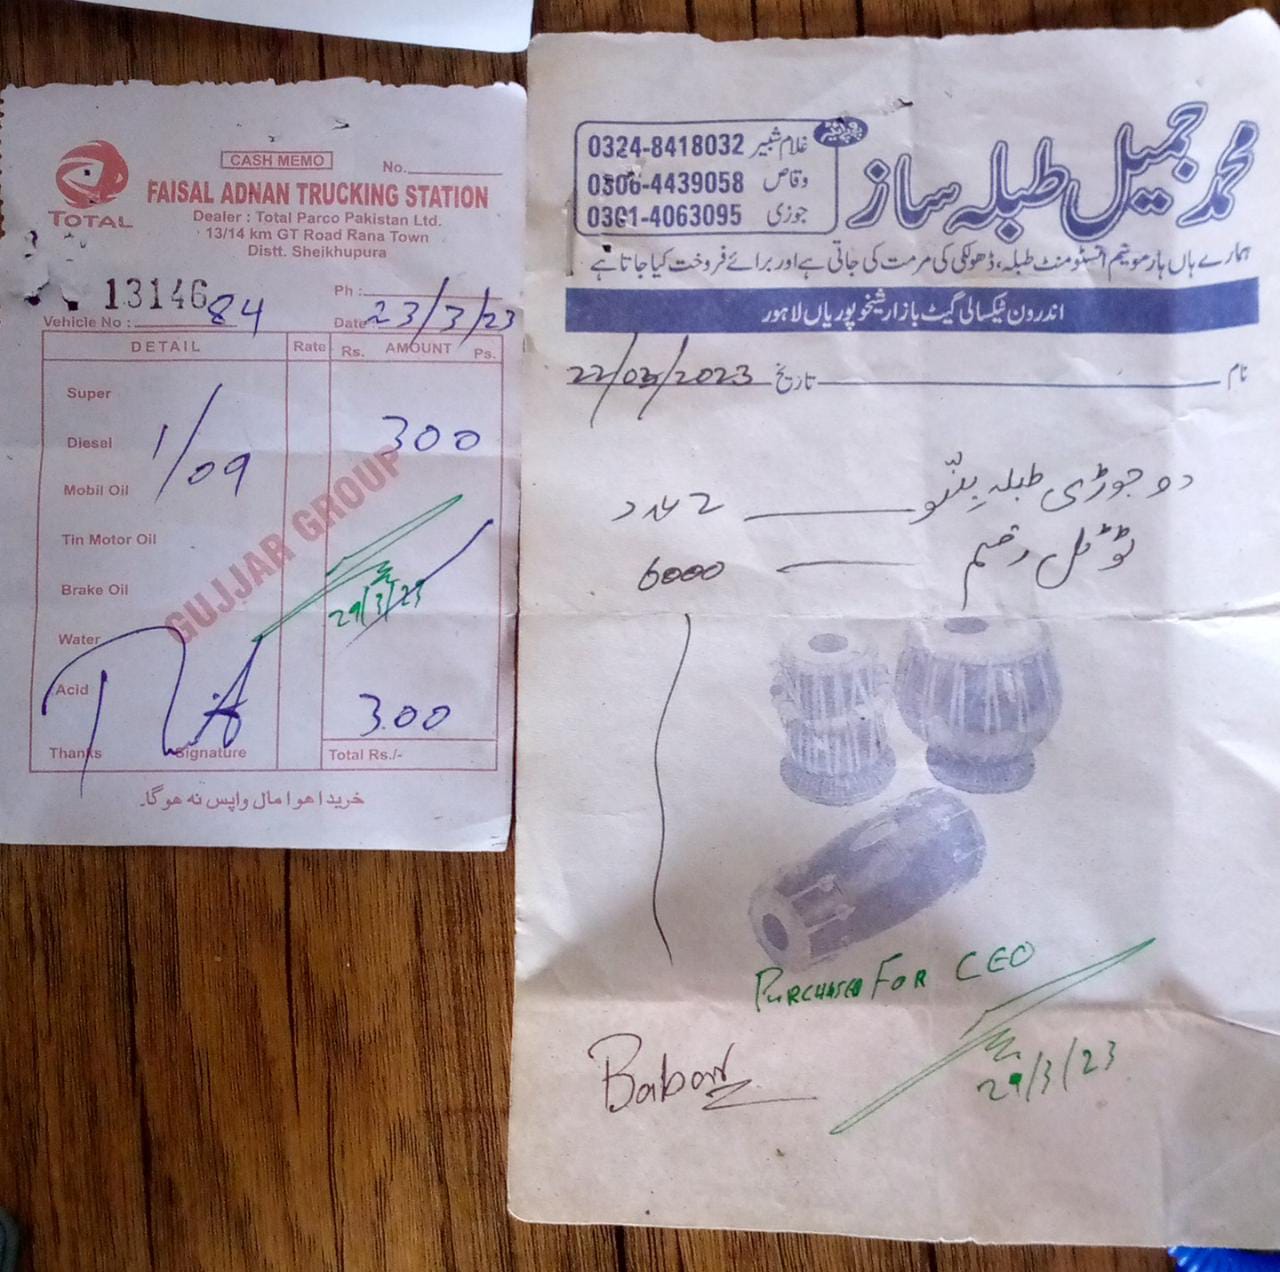 CASH MEMO
No.
FAISAL ADNAN TRUCKING STATION
TOTAL
Dealer : Total Parco Pakistan Ltd.
13/14 km GT Road Rana Town
Distt. Sheikhupura
13146
Ph :
Vehicle No : 84
Date 23/3/23
DETAIL Rate Rs. AMOUNT Ps.
Super
Diesel 1/09 300
Mobil Oil
Tin Motor Oil
Brake Oil
GUJJAR GROUP
29/3/23
Water
Acid
300
Thanks Signature Total Rs./-
خریدا ھوا مال واپس نہ ھوگا۔
محمد جمیل طبلہ ساز
پروپرائیٹر
غلام شبیر 0324-8418032
وقاص 0306-4439058
جوزی 0301-4063095
ہمارے ہاں ہارمونیم انسٹومنٹ طبلہ، ڈھولکی کی مرمت کی جاتی ہے اور برائے فروخت کیا جاتا ہے
اندرون ٹیکسالی گیٹ بازار شیخوپوریاں لاہور
نام تاریخ 22/03/2023
دو جوڑی طبلہ
ٹوٹل رقم 6000
PURCHASED FOR CEO
Babar
29/3/23